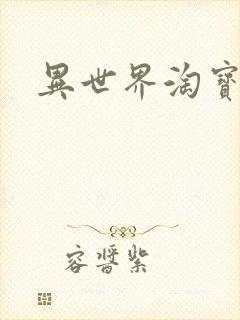 異世界淘寶
容醬紫